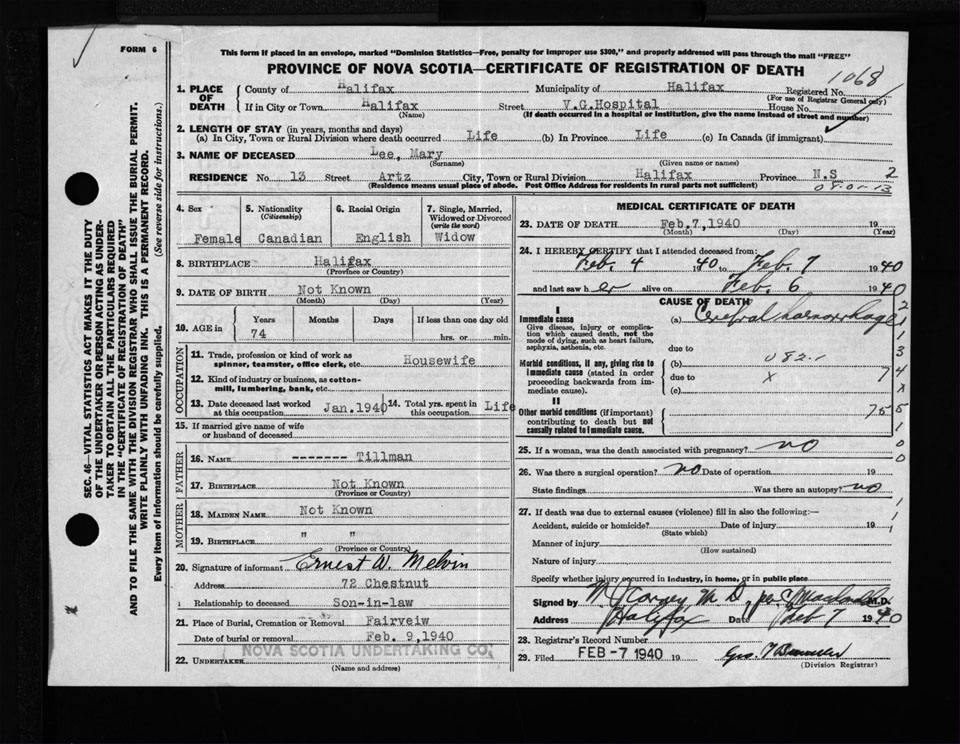 FORM 6
This form if placed in an envelope, marked "Dominion Statistics—Free, penalty for improper use $300," and properly addressed will pass through the mail "FREE"
PROVINCE OF NOVA SCOTIA—CERTIFICATE OF REGISTRATION OF DEATH
1068
1. PLACE OF DEATH
County of Halifax Municipality of Halifax Registered No.
(For use of Registrar General only)
If in City or Town Halifax Street V.G.Hospital House No.
(Name) (If death occurred in a hospital or institution, give the name instead of street and number)
2. LENGTH OF STAY (in years, months and days)
(a) In City, Town or Rural Division where death occurred Life (b) In Province Life (c) In Canada (if immigrant)
3. NAME OF DECEASED Lee, Mary
(Surname) (Given name or names)
RESIDENCE No. 13 Street Artz City, Town or Rural Division Halifax Province N.S 2
(Residence means usual place of abode. Post Office Address for residents in rural parts not sufficient)
4. Sex 5. Nationality (Citizenship) 6. Racial Origin 7. Single, Married, Widowed or Divorced (write the word)
Female Canadian English Widow
8. BIRTHPLACE Halifax
(Province or Country)
9. DATE OF BIRTH Not Known
(Month) (Day) (Year)
10. AGE in Years Months Days If less than one day old
74 hrs. or min.
OCCUPATION
11. Trade, profession or kind of work as spinner, teamster, office clerk, etc. Housewife
12. Kind of industry or business, as cotton-mill, lumbering, bank, etc.
13. Date deceased last worked at this occupation Jan.1940 14. Total yrs. spent in this occupation Life
15. If married give name of wife or husband of deceased
FATHER
16. NAME -------- Tillman
17. BIRTHPLACE Not Known
(Province or Country)
MOTHER
18. MAIDEN NAME Not Known
19. BIRTHPLACE " "
(Province or Country)
20. Signature of informant Ernest W. Melvin
Address 72 Chestnut
Relationship to deceased Son-in-law
21. Place of Burial, Cremation or Removal Fairveiw
Date of burial or removal Feb. 9,1940
22. UNDERTAKER NOVA SCOTIA UNDERTAKING CO.
(Name and address)
MEDICAL CERTIFICATE OF DEATH
23. DATE OF DEATH Feb,7,1940 19
(Month) (Day) (Year)
24. I HEREBY CERTIFY that I attended deceased from:
Feb. 4 1940 to Feb. 7 1940
and last saw her alive on Feb. 6 1940
CAUSE OF DEATH
I
Immediate cause (a) Cerebral haemorrhage
Give disease, injury or complication which caused death, not the mode of dying, such as heart failure, asphyxia, asthenia, etc.
due to
Morbid conditions, if any, giving rise to immediate cause (stated in order proceeding backwards from immediate cause).
(b) 082.1
due to x
(c)
II
Other morbid conditions (if important) contributing to death but not causally related to immediate cause.
25. If a woman, was the death associated with pregnancy? no
26. Was there a surgical operation? no Date of operation 19
State findings Was there an autopsy? no
27. If death was due to external causes (violence) fill in also the following:—
Accident, suicide or homicide? Date of injury 19
(State which)
Manner of injury
(How sustained)
Nature of injury
Specify whether injury occurred in industry, in home, or in public place
Signed by M.D.
Address Halifax Date Feb 7 1940
28. Registrar's Record Number
29. Filed FEB -7 1940 19
(Division Registrar)
SEC. 46—VITAL STATISTICS ACT MAKES IT THE DUTY
OF THE UNDERTAKER OR PERSON ACTING AS UNDERTAKER
TO OBTAIN ALL THE PARTICULARS REQUIRED
IN THE "CERTIFICATE OF REGISTRATION OF DEATH"
AND TO FILE THE SAME WITH THE DIVISION REGISTRAR WHO SHALL ISSUE THE BURIAL PERMIT.
WRITE PLAINLY WITH UNFADING INK. THIS IS A PERMANENT RECORD.
Every item of information should be carefully supplied. (See reverse side for instructions.)